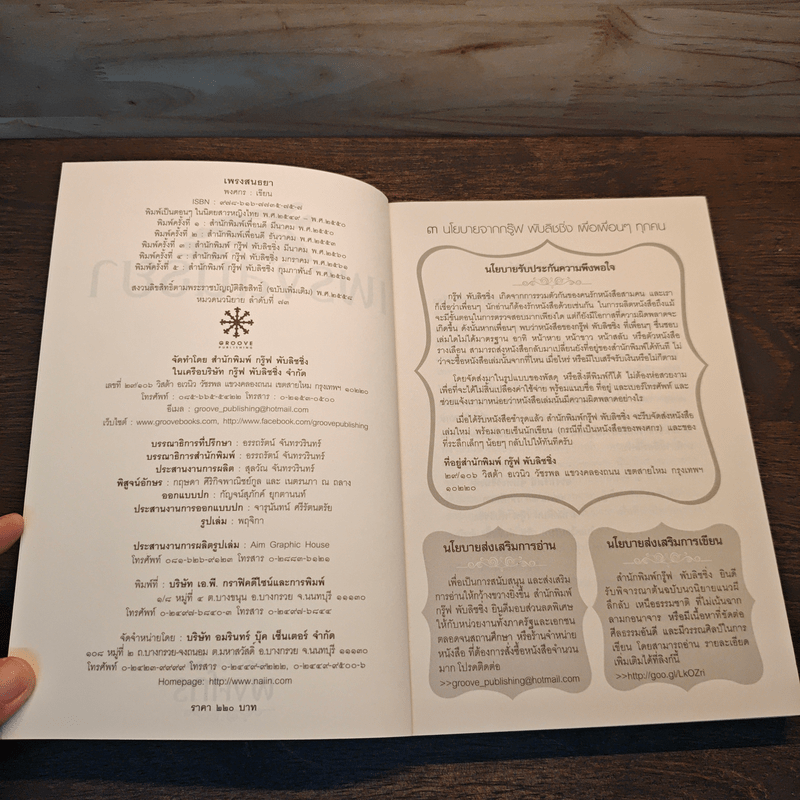 เพรงสนธยา
พงศกร : เขียน
ISBN : ๙๗๘-๖๑๖-๗๗๓๕-๗๕-๗
พิมพ์เป็นตอนๆ ในนิตยสารหญิงไทย พ.ศ.๒๕๔๙ - พ.ศ.๒๕๕๐
พิมพ์ครั้งที่ ๑ : สำนักพิมพ์เพื่อนดี มีนาคม พ.ศ.๒๕๕๐
พิมพ์ครั้งที่ ๒ : สำนักพิมพ์เพื่อนดี ธันวาคม พ.ศ.๒๕๕๓
พิมพ์ครั้งที่ ๓ : สำนักพิมพ์ กรู๊ฟ พับลิชชิ่ง มีนาคม พ.ศ.๒๕๖๐
พิมพ์ครั้งที่ ๔ : สำนักพิมพ์ กรู๊ฟ พับลิชชิ่ง มกราคม พ.ศ.๒๕๖๑
พิมพ์ครั้งที่ ๕ : สำนักพิมพ์ กรู๊ฟ พับลิชชิ่ง กุมภาพันธ์ พ.ศ.๒๕๖๑
สงวนลิขสิทธิ์ตามพระราชบัญญัติลิขสิทธิ์ (ฉบับเพิ่มเติม) พ.ศ.๒๕๕๘
หมวดนวนิยาย ลำดับที่ ๗๓
GROOVE
PUBLISHING
จัดทำโดย สำนักพิมพ์ กรู๊ฟ พับลิชชิ่ง
ในเครือบริษัท กรู๊ฟ พับลิชชิ่ง จำกัด
เลขที่ ๒๙/๑๐๖ วิสต้า อเวนิว วัชรพล แขวงคลองถนน เขตสายไหม กรุงเทพฯ ๑๐๒๒๐
โทรศัพท์ : ๐๘๕-๖๖๕-๕๔๒๒ โทรสาร : ๐-๒๑๕๓-๐๕๐๐
อีเมล : groove_publishing@hotmail.com
เว็บไซต์ : www.groovebooks.com, http://www.facebook.com/groovepublishing
บรรณาธิการที่ปรึกษา : อรรถรัตน์ จันทรวรินทร์
บรรณาธิการสำนักพิมพ์ : อรรถรัตน์ จันทรวรินทร์
ประสานงานการผลิต : สุดวัณ จันทรวรินทร์
พิสูจน์อักษร : กฤษดา ศิริกิจพาณิชย์กูล และ เนตรนภา ณ ถลาง
ออกแบบปก : กัญจน์สุภักค์ ยุกตานนท์
ประสานงานการออกแบบปก : จารุนันทน์ ศรีรัตนตรัย
รูปเล่ม : พฤจิกา
ประสานงานการผลิตรูปเล่ม : Aim Graphic House
โทรศัพท์ ๐๘๑-๖๒๖-๙๑๒๓ โทรสาร ๐-๒๘๘๓-๖๑๒๑
พิมพ์ที่ : บริษัท เอ.พี. กราฟิคดีไซน์และการพิมพ์
๑/๘ หมู่ที่ ๔ ต.บางขนุน อ.บางกรวย จ.นนทบุรี ๑๑๑๓๐
โทรศัพท์ ๐-๒๔๙๗-๖๘๔๐-๓ โทรสาร ๐-๒๔๙๗-๖๘๔๔
จัดจำหน่ายโดย : บริษัท อมรินทร์ บุ๊ค เซ็นเตอร์ จำกัด
๑๐๘ หมู่ที่ ๒ ถ.บางกรวย-จงถนอม ต.มหาสวัสดิ์ อ.บางกรวย จ.นนทบุรี ๑๑๑๓๐
โทรศัพท์ ๐-๒๔๒๓-๙๙๙๙ โทรสาร ๐-๒๔๔๙-๙๒๒๒, ๐-๒๔๔๙-๙๕๐๐-๖
Homepage: http://www.naiin.com
ราคา ๒๒๐ บาท
๓ นโยบายจากกรู๊ฟ พับลิชชิ่ง เพื่อเพื่อนๆ ทุกคน
นโยบายรับประกันความพึงพอใจ
กรู๊ฟ พับลิชชิ่ง เกิดจากการรวมตัวกันของคนรักหนังสือสามคน และเรา
ก็เชื่อว่าเพื่อนๆ นักอ่านก็ต้องรักหนังสือด้วยเช่นกัน ในการผลิตหนังสือถึงแม้
จะมีขั้นตอนในการตรวจสอบมากเพียงใด แต่ก็ยังมีโอกาสที่ความผิดพลาดจะ
เกิดขึ้น ดังนั้นหากเพื่อนๆ พบว่าหนังสือของกรู๊ฟ พับลิชชิ่ง ที่เพื่อนๆ ชื่นชอบ
เล่มใดไม่ได้มาตรฐาน อาทิ หน้าหาย หน้าขาว หน้าสลับ หรือตัวหนังสือ
รางเลือน สามารถส่งหนังสือกลับมาเปลี่ยนยังที่อยู่ของสำนักพิมพ์ได้ทันที ไม่
ว่าจะซื้อหนังสือเล่มนั้นจากที่ไหน เมื่อไหร่ หรือมีใบเสร็จรับเงินหรือไม่ก็ตาม
โดยจัดส่งมาในรูปแบบของพัสดุ หรือสิ่งตีพิมพ์ก็ได้ ไม่ต้องห่อสวยงาม
เพื่อที่จะได้ไม่สิ้นเปลืองค่าใช้จ่าย พร้อมแนบชื่อ ที่อยู่ และเบอร์โทรศัพท์ และ
ช่วยแจ้งเรามาหน่อยว่าหนังสือเล่มนั้นมีความผิดพลาดอย่างไร
เมื่อได้รับหนังสือชำรุดแล้ว สำนักพิมพ์กรู๊ฟ พับลิชชิ่ง จะรีบจัดส่งหนังสือ
เล่มใหม่ พร้อมลายเซ็นนักเขียน (กรณีที่เป็นหนังสือของพงศกร) และของ
ที่ระลึกเล็กๆ น้อยๆ กลับไปให้ทันทีครับ
ที่อยู่สำนักพิมพ์ กรู๊ฟ พับลิชชิ่ง
๒๙/๑๐๖ วิสต้า อเวนิว วัชรพล แขวงคลองถนน เขตสายไหม กรุงเทพฯ
๑๐๒๒๐
นโยบายส่งเสริมการอ่าน
เพื่อเป็นการสนับสนุน และส่งเสริม
การอ่านให้กว้างขวางยิ่งขึ้น สำนักพิมพ์
กรู๊ฟ พับลิชชิ่ง ยินดีมอบส่วนลดพิเศษ
ให้กับหน่วยงานทั้งภาครัฐและเอกชน
ตลอดจนสถานศึกษา หรือร้านจำหน่าย
หนังสือ ที่ต้องการสั่งซื้อหนังสือจำนวน
มาก โปรดติดต่อ
>>groove_publishing@hotmail.com
นโยบายส่งเสริมการเขียน
สำนักพิมพ์กรู๊ฟ พับลิชชิ่ง ยินดี
รับพิจารณาต้นฉบับนวนิยายแนวผี
ลึกลับ เหนือธรรมชาติ ที่ไม่เน้นฉาก
ลามกอนาจาร หรือมีเนื้อหาที่ขัดต่อ
ศีลธรรมอันดี และมีวรรณศิลป์ในการ
เขียน โดยสามารถอ่าน รายละเอียด
เพิ่มเติมได้ที่ลิงก์นี้
>>http://goo.gl/LkOZri